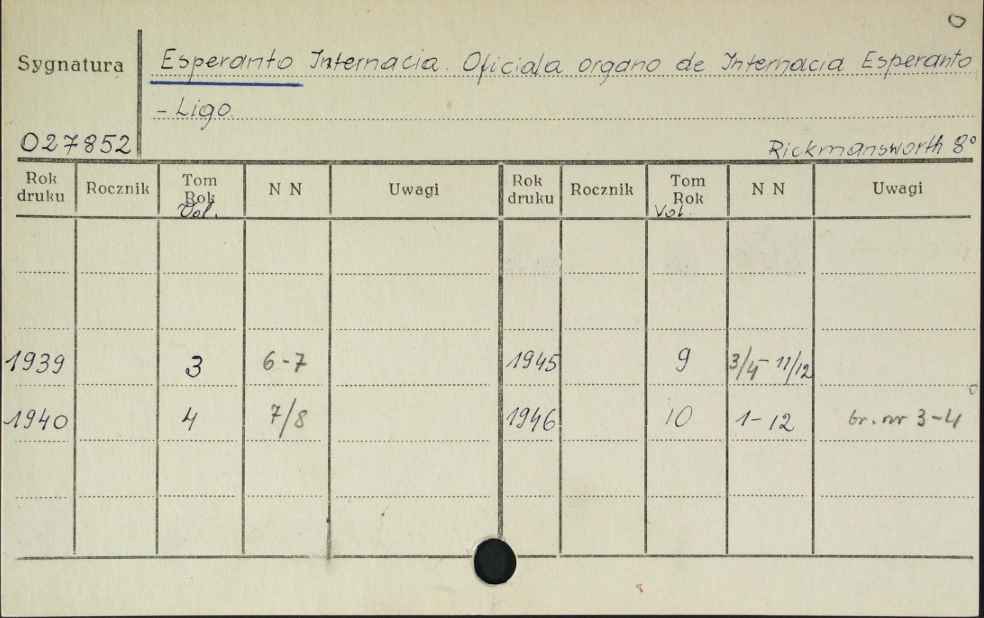 O
Sygnatura
Esperanto Internacia. Oficiala organo de Internacia Esperanto
- Ligo.
027852
Rickmansworth 8°
Rok druku Rocznik Tom Rok Vol. N N Uwagi Rok druku Rocznik Tom Rok Vol. N N Uwagi
1939 3 6-7 1945 9 3/4- 11/12
1940 4 7/8 1946 10 1-12 br. nr 3-4